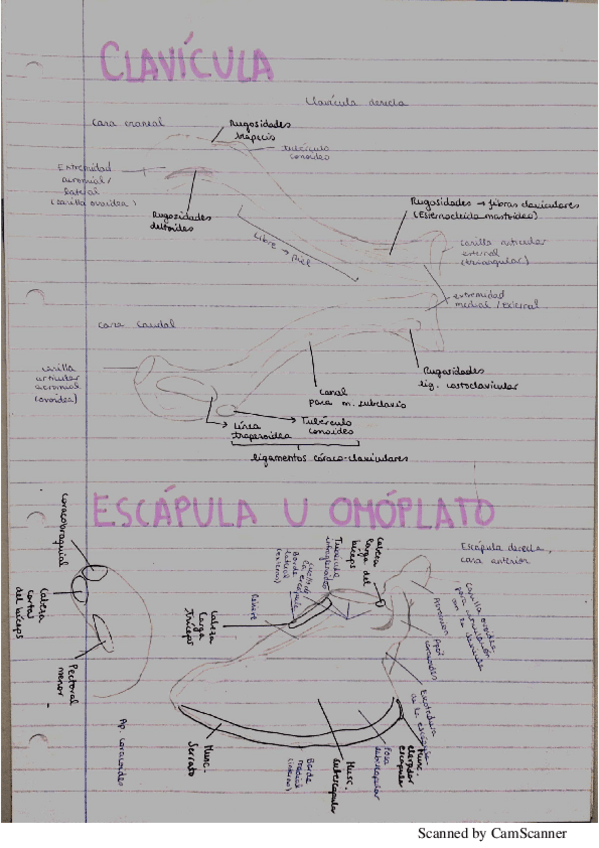 CLAVÍCULA
Clavícula derecha
Cara craneal
Rugosidades
trapecio
tubérculo
conoideo
Extremidad
acromial/
lateral
(carilla ovoidea)
Rugosidades
deltoides
Libre → Piel
Rugosidades → fibras claviculares
(Esternocleido-mastoideo)
carilla articular
external
(triangular)
extremidad
medial/external
cara caudal
carilla
articular
acromial
(ovoidea)
Rugosidades
lig. costoclavicular
canal
para m. subclavio
Línea
trapezoidea
Tubérculo
conoideo
ligamentos córaco-claviculares
ESCÁPULA U OMÓPLATO
Escápula derecha,
cara anterior
coracobraquial
Cabeza
corta
del bíceps
Pectoral
menor
Ap. coracoides
Cabeza
larga del
bíceps
Tubérculo
infraglenoideo
Borde
lateral
(externo)
Cabeza
larga
tríceps
Carilla ovoidea
para articulación
con la clavícula
Acromion
Apó.
coracoides
Escotadura
de la escápula
Musc.
elevador
escápular
Fosa
subescapular
Musc.
subescapular
Borde
medial
(interno)
Musc.
Serrato
Scanned by CamScanner